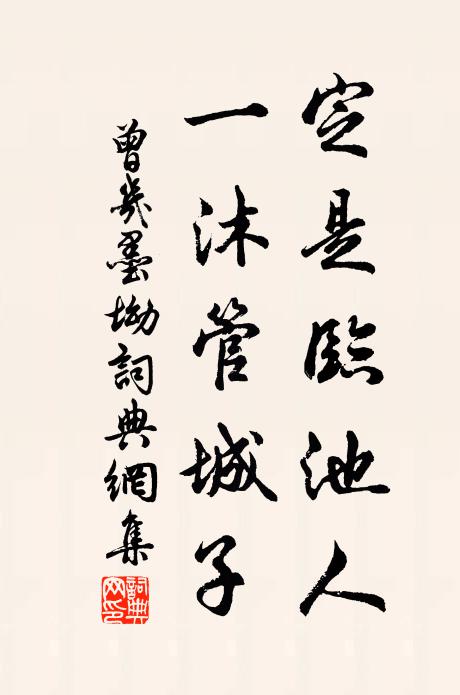 定是臨池人
一沐管城子
曾幾墨坳詞典網集
詞典网印